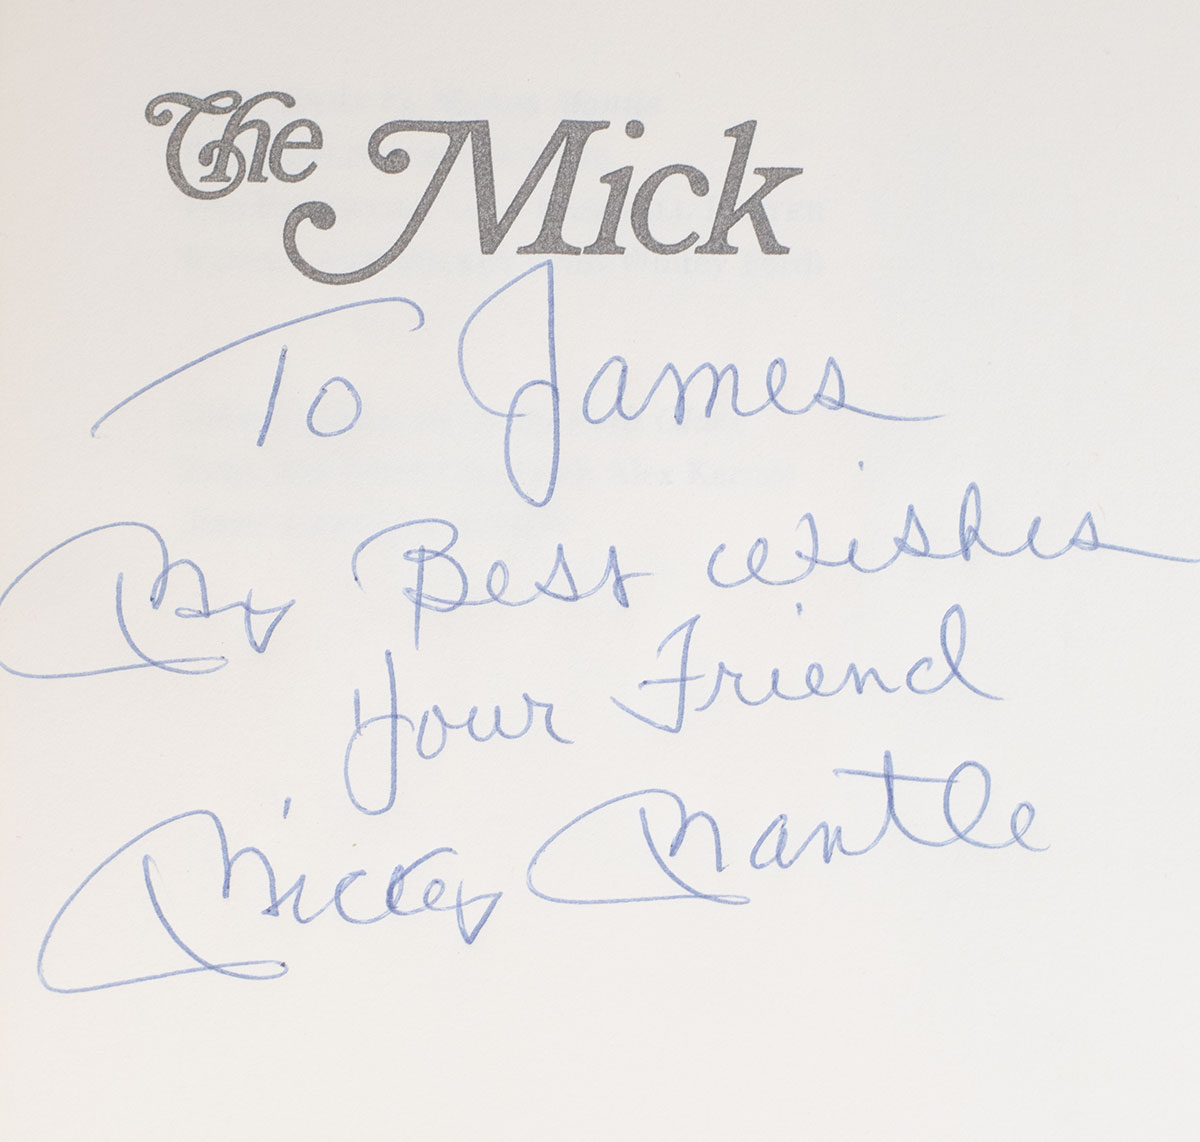 The Mick
To James
My Best wishes
Your Friend
Mickey Mantle